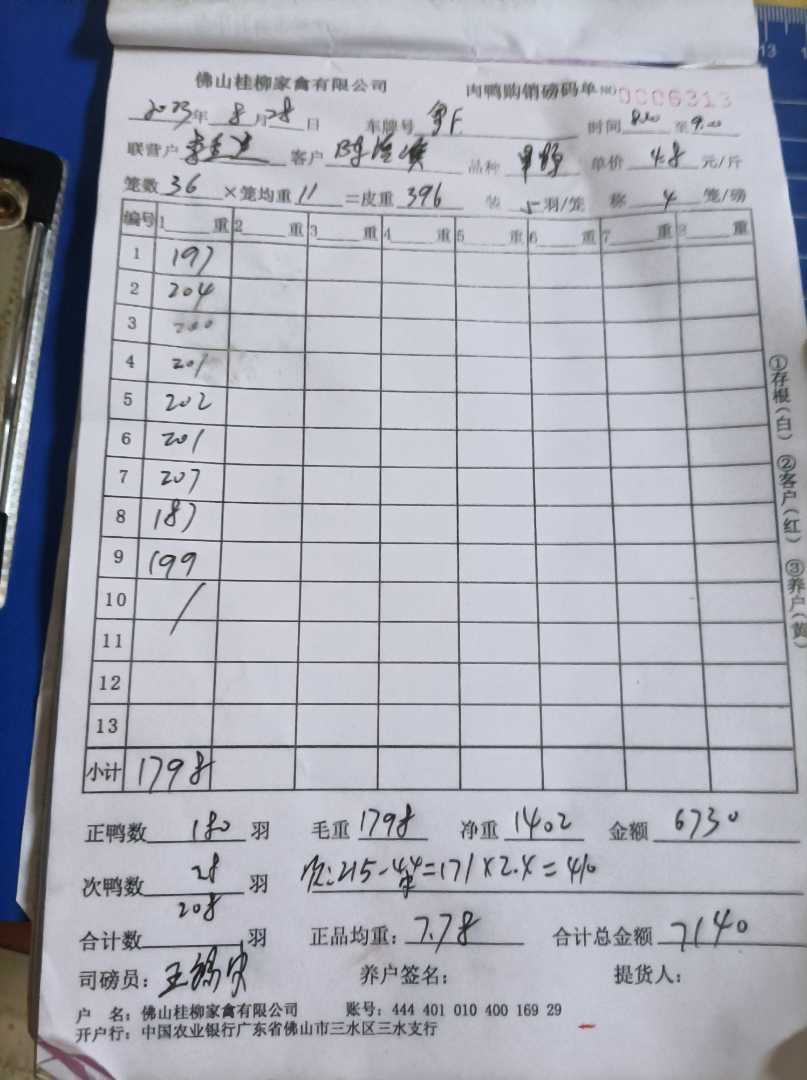 佛山桂柳家禽有限公司 肉鸭购销磅码单 NO 0006313
2023年 8月28日 车牌号 时间 8:00 至 9:00
联营户 客户 品种 单价 4.8 元/斤
笼数 36 ×笼均重 11 =皮重 396 装 5 羽/笼 称 4 笼/磅
编号 1 重 2 重 3 重 4 重 5 重 6 重 7 重 8 重
1 197
2 204
3 200
4 201
5 202
6 201
7 207
8 187
9 199
10 /
11
12
13
小计 1798
正鸭数 180 羽 毛重 1798 净重 1402 金额 6730
次鸭数 28 羽 次:215-44=171×2.4=410
合计数 208 羽 正品均重: 7.78 合计总金额 7140
司磅员: 养户签名: 提货人:
户 名: 佛山桂柳家禽有限公司 账号: 444 401 010 400 169 29
开户行: 中国农业银行广东省佛山市三水区三水支行
①存根(白) ②客户(红) ③养户(黄)
13